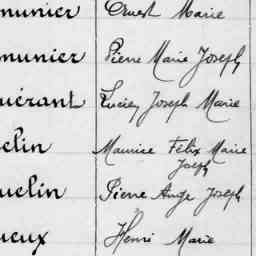 munier Ernest Marie
munier Pierre Marie Joseph
uérant Lucien Joseph Marie
elin Maurice Félix Marie
Joseph
uelin Pierre Ange Joseph
ueux Henri Marie